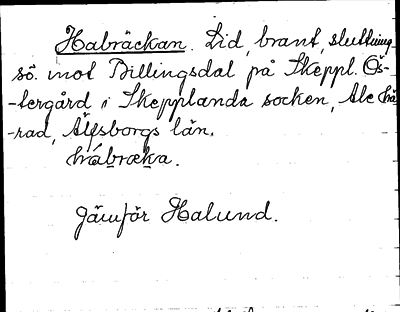 Habräckan. Lid, brant, sluttning
sö. mot Billingsdal på Skeppl. Ös-
-tergård i Skepplanda socken, Ale hä-
-rad, Älfsborgs län.
hábræka.
Jämför Halund.